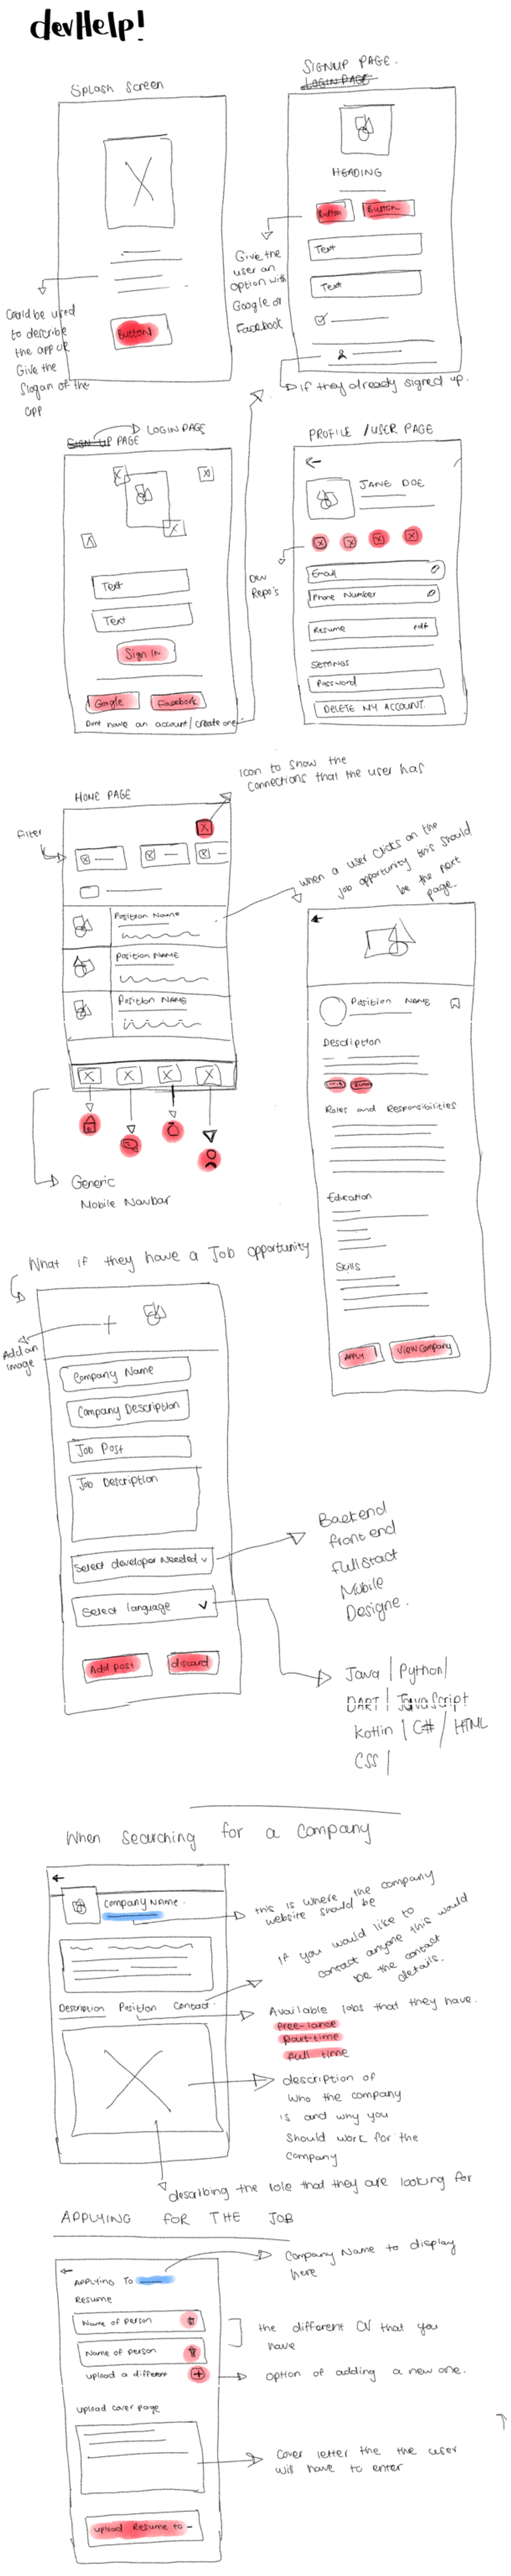 devHelp!
Splash Screen
Button
Could be used
to describe
the app or
Give the
Slogan of the
app
SIGNUP PAGE.
LOGIN PAGE
HEADING
Button
Button
Text
Text
Give the
user an
option with
Google or
Facebook
If they already signed up.
SIGN UP PAGE
LOGIN PAGE
Text
Text
Sign In
Google
Facebook
Dont have an account/create one
PROFILE /USER PAGE
JANE DOE
Dev
Repo's
Email
Phone Number
Resume
pdf
SETTINGS
Password
DELETE MY ACCOUNT.
HOME PAGE
Icon to show the
connections that the user has
Filter
Position Name
Position NAME
Position NAME
Generic
Mobile Navbar
when a user clicks on the
job opportunity this should
be the next
page.
Position NAME
Description
Roles and Responsibilities
Education
Skills
APPLY
View Company
What if they have a Job opportunity
Add an
image
Company Name
Company Description
Job Post
Job Description
Select developer Needed
Select language
Add post
discard
Backend
frontend
fullstact
Mobile
Designe.
Java | Python |
DART | JavaScript
Kotlin | C# / HTML
CSS |
When searching for a Company
Company Name.
this is where the company
website should be
If you would like to
contact anyone this would
be the contact
details.
Description Position Contact
Available jobs that they have.
free-lance
part-time
full time
description of
who the company
is and why you
should work for the
company
describing the role that they are looking for
APPLYING FOR THE JOB
Company Name to display
here
APPLYING TO
Resume
Name of person
Name of person
upload a different
the different CV that you
have
option of adding a new one.
upload cover page
Cover letter the the user
will have to enter
upload Resume to -